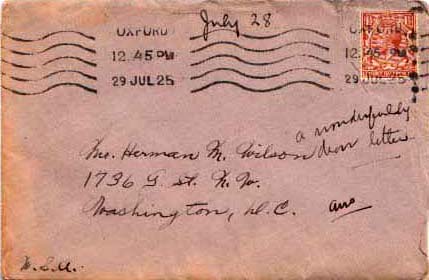 July 28
OXFORD OXFORD
12.45 PM 12.45 PM
29 JUL 25 29 JUL 25
a wonderfully
dear letter
Mrs. Herman M. Wilson
1736 G. St. N. W.
Washington, D.C.
ans
U.S.A.